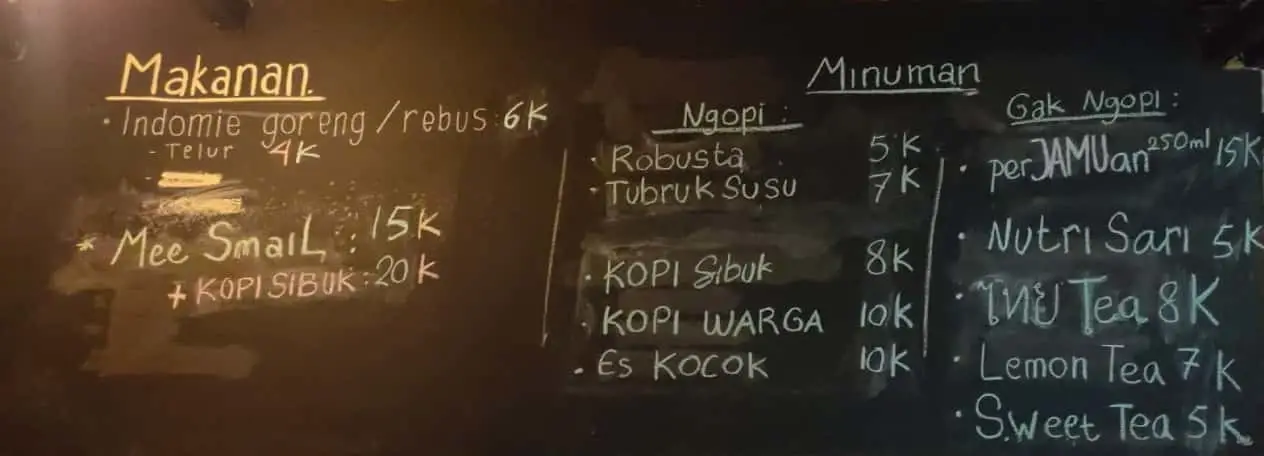 Makanan.
• Indomie goreng /rebus: 6K
- Telur 4K
* Mee SmaiL : 15K
+ KOPI SIBUK : 20K
Minuman
Ngopi :
• Robusta 5K
• Tubruk Susu 7K
• KOPI Sibuk 8K
• KOPI WARGA 10K
• Es KOCOK 10K
Gak Ngopi :
• perJAMUan 250ml 15K
• Nutri Sari 5K
• ไทย Tea 8K
• Lemon Tea 7K
• Sweet Tea 5K